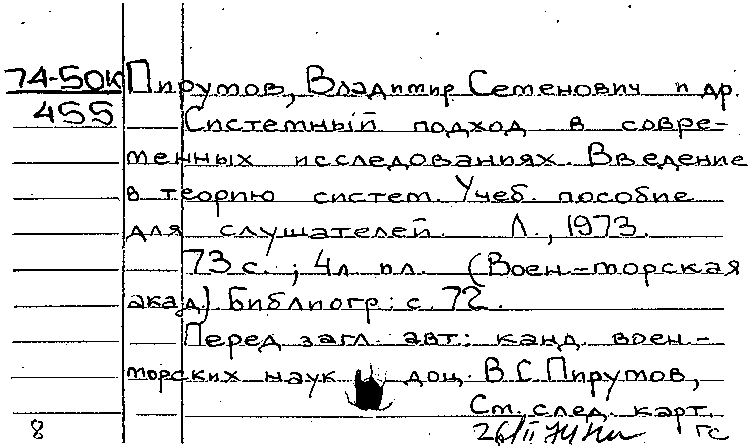 74-50к Пирумов, Владимир Семенович и др.
455 Системный подход в совре-
менных исследованиях. Введение
в теорию систем. Учеб. пособие
для слушателей. Л., 1973.
73 с.; 4 л. пл. (Воен.-морская
акад.) Библиогр.: с. 72.
Перед загл. авт.: канд. воен.-
морских наук доц. В. С. Пирумов,
См. след. карт.
8 26/II 74 гс